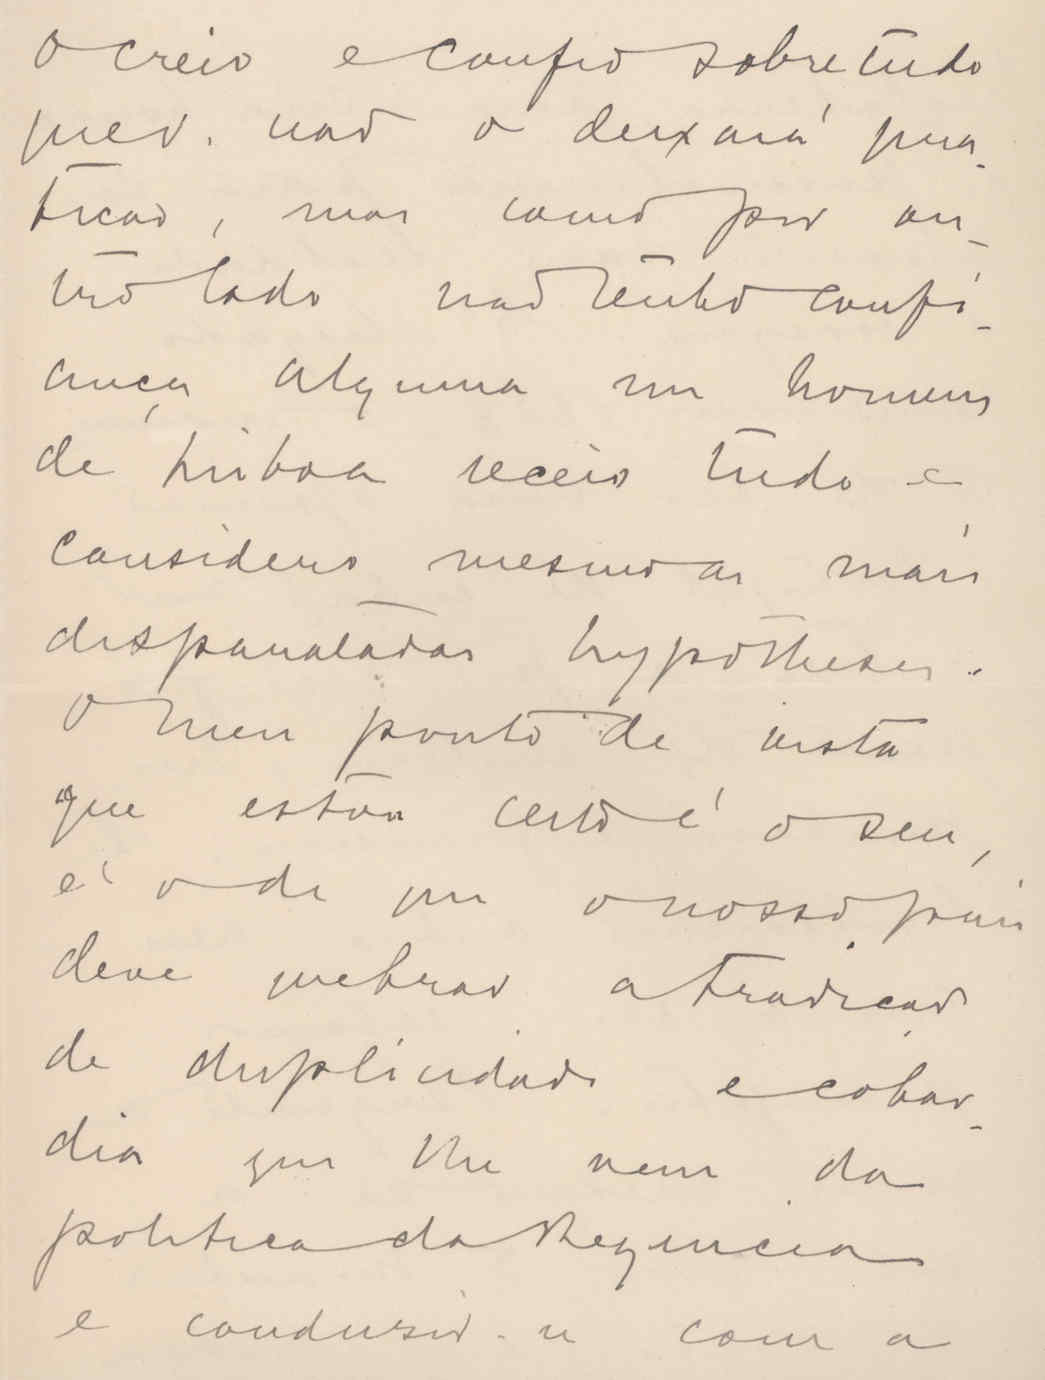 o creio e confio sobretudo
que V. não o deixará pra-
ticar, mas como por ou-
tro lado não tenho confi-
ança alguma em homens
de Lisboa receio tudo e
considero mesmo as mais
disparatadas hypotheses.
O meu ponto de vista
que estou certo é o seu,
é o de que o nosso pais
deve quebrar a tradicção
de duplicidade e cobar-
dia que lhe vem da
politica da Regencia
e condusir-se com a